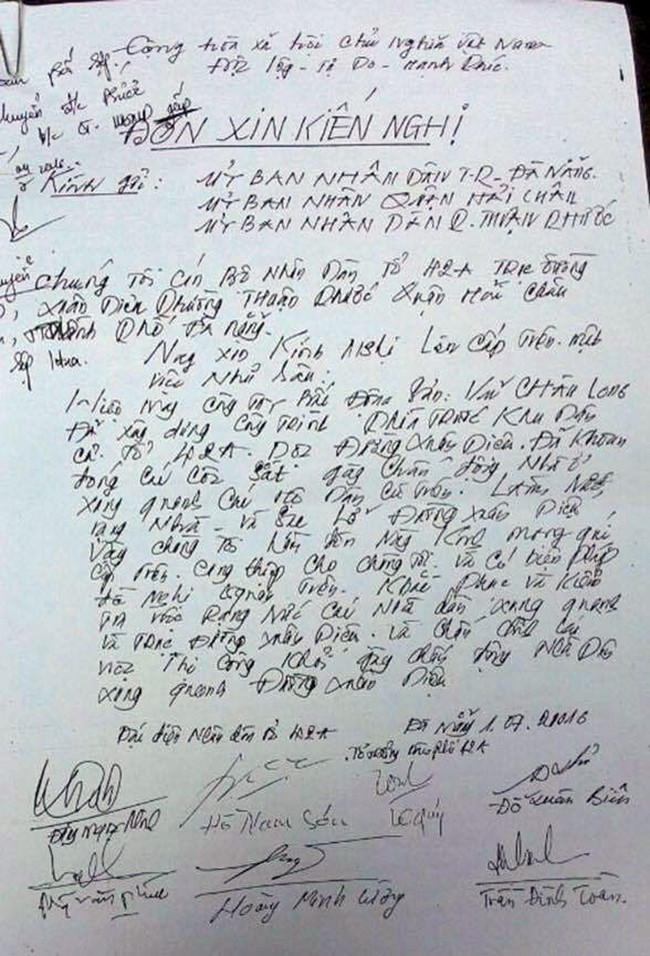 Cộng hòa xã hội chủ nghĩa Việt Nam
Độc lập - Tự Do - Hạnh Phúc.
ĐƠN XIN KIẾN NGHỊ
Kính gửi: ỦY BAN NHÂN DÂN T.P - ĐÀ NẴNG.
ỦY BAN NHÂN QUẬN HẢI CHÂU
ỦY BAN NHÂN DÂN P. THUẬN PHƯỚC
Chúng Tôi Cán Bộ Nhân Dân Tổ 42A Trục Đường
Xuân Diệu Phường Thuận Phước Quận Hải Châu
Thành Phố Đà Nẵng.
Nay xin Kính Nghị Lên Cấp Trên. một
việc Như Sau:
Công Ty Bất Động Sản: VŨ CHÂU LONG
Đã xây dựng công Trình Phía Trước Khu Dân
Cư Tổ 42A. Dọc Đường Xuân Diệu. Đã Khoan
đóng Cừ Cọc Sắt gây Chấn động Nhà ở
xung quanh Các Hộ Dân Cư Trên. Làm Nứt,
rạng Nhà - và Đường Xuân Diệu
Vậy chúng Tôi Làm đơn Này Kính mong quí
Cấp Trên. Can thiệp Cho chúng Tôi. Và Có biện pháp
đề Nghị Khắc Phục và Kiểm
Tra việc Rạng Nứt Các Nhà dân xung quanh
và Trục Đường Xuân Diệu. Và Chấn chỉnh Lại
việc Thi Công Khỏi gây chấn động Nhà Dân
xung quanh Đường Xuân Diệu
Đại diện Nhân dân Tổ 42A
Đà Nẵng 1.07.2016
Tổ trưởng 42A
Hồ Nam Sơn
Lê Quý
Đỗ Xuân Biên
Hoàng Minh
Trần Đình Toàn.